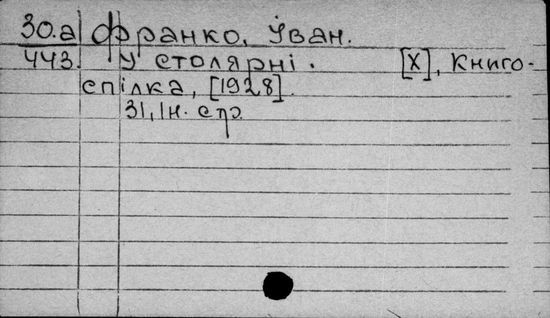 30.а Франко, Іван.
443. У столярні. [Х], Книго-
спілка, [1928].
31, 1н. стр.